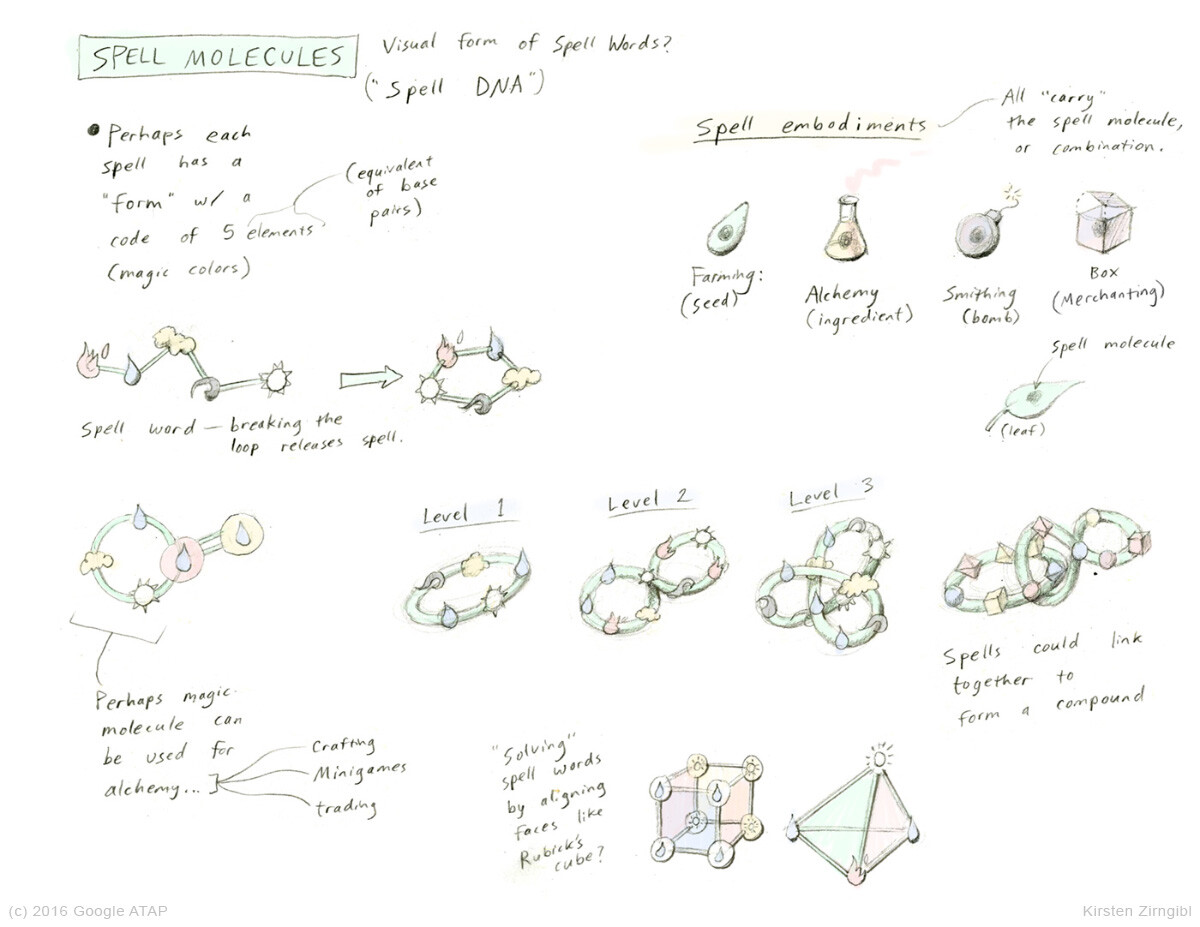 SPELL MOLECULES
Visual form of Spell Words?
("Spell DNA")
Perhaps each
spell has a
"form" w/ a
code of 5 elements
(magic colors)
(equivalent
of base
pairs)
Spell embodiments
All "carry"
the spell molecule,
or combination.
Farming:
(seed)
Alchemy
(ingredient)
Smithing
(bomb)
Box
(Merchanting)
Spell molecule
(leaf)
Spell word — breaking the
loop releases spell.
Level 1
Level 2
Level 3
Spells could link
together to
form a compound
Perhaps magic
molecule can
be used for
alchemy...
Crafting
Minigames
trading
"Solving"
spell words
by aligning
faces like
Rubick's
cube?
(c) 2016 Google ATAP
Kirsten Zirngibl